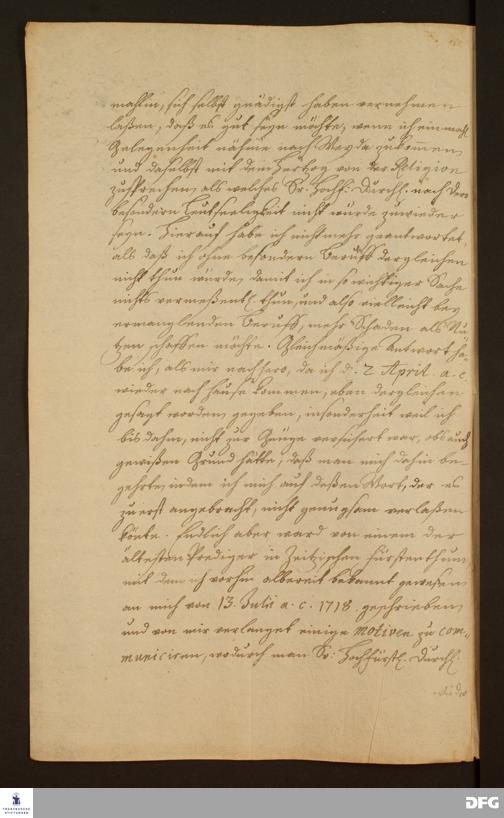 mahlin, sich selbst gnädigst haben vernehmen
laßen, daß es gut seyn möchte, wenn ich einmahl
Gelegenheit nähme nach Weyda zu kom̃en,
und daselbst mit dem Hertzog von der Religion
zusprechen, als welches Sr. Hochf. Durchl. nach dero
besondern Leutseeligkeit nicht würde zuwieder
seyn. Hierauf habe ich nicht mehr geantwortet,
als daß ich ohne besondern Beruff dergleichen
nicht thun würde, damit ich in so wichtiger Sache
nichts vermeßentl. thun, und also vielleicht bey
ermanglenden Beruff, mehr Schaden als Nu-
tzen schaffen möchte. Gleichmäßige Antwort ha-
be ich, als mir nachhero, da ich d. 2 April. a. c.
wieder nach Hause kommen, eben dergleichen
gesagt worden, gegeben, insonderheit weil ich
bis dahin, nicht zur Gnüge versichert war, ob es auch
gewißen Grund hätte, daß man mich dahin be-
gehrte, indem ich mich auf deßen Wort, der es
zu erst angebracht, nicht genugsam verlaßen
könte. Endlich aber ward von einem der
ältesten Prediger in Zeitzischen Fürstenthum
mit dem ich vorhin albereit bekannt gewesen,
an mich von 13. Julii a. c. 1718 geschrieben,
und von mir verlanget einige motiven zu com-
municiren, wodurch man Sr. Hochfürstl. Durchl.
FRANCKESCHE
STIFTUNGEN
DFG